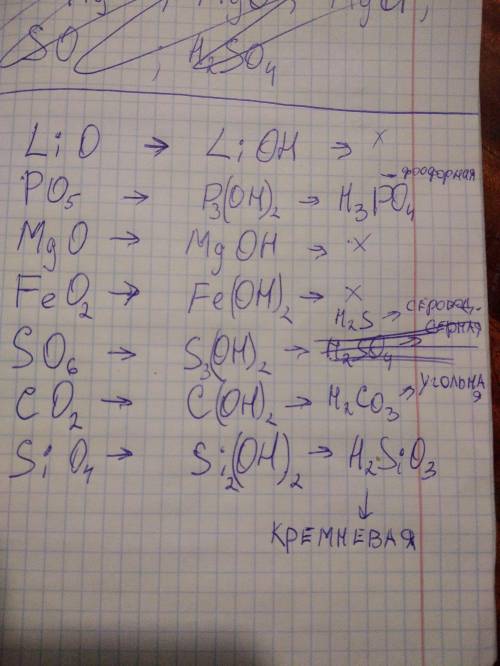 SO ; H₂SO₄
LiO → LiOH → x
PO₅ → P₃(OH)₂ → H₃PO₄ → фосфорная
MgO → MgOH → x
FeO₂ → Fe(OH)₂ → x
H₂S → серовод.
SO₆ → S₃(OH)₂ → H₂SO₄ → серная
CO₂ → C(OH)₂ → H₂CO₃ → угольная
SiO₄ → Si₂(OH)₂ → H₂SiO₃
↓
КРЕМНЕВАЯ